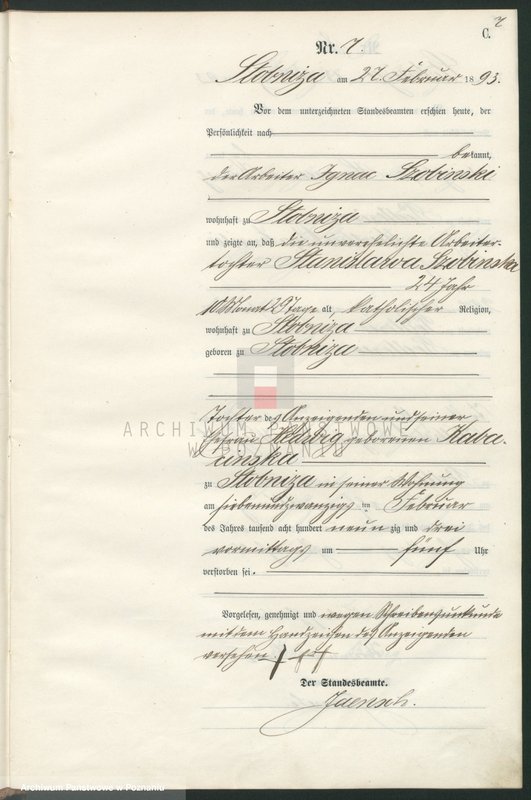 7
C.
Nr. 7.
Stobniza am 27. Februar 1893.
Vor dem unterzeichneten Standesbeamten erschien heute, der
Persönlichkeit nach
bekannt,
der Arbeiter Ignac Szobinski
wohnhaft zu Stobniza
und zeigte an, daß die unverehelichte Arbeiter-
tochter Stanislawa Szobinska
24 Jahr
10 Monat 29 Tage alt, katholischer Religion,
wohnhaft zu Stobniza
geboren zu Stobniza
Tochter des Anzeigenden und seiner
ARCHIWUM PAŃSTWOWE
Ehefrau Hedwig geborenen Kaba-
W POZNANIU
zinska
zu Stobniza in seiner Wohnung
am siebenundzwanzigs ten Februar
des Jahres tausend acht hundert neunzig und drei
vormittags um fünf Uhr
verstorben sei.
Vorgelesen, genehmigt und wegen Schreibensunkunde
mit dem Handzeichen des Anzeigenden
versehen +++
Der Standesbeamte.
Jaensch.
Archiwum Państwowe w Poznaniu